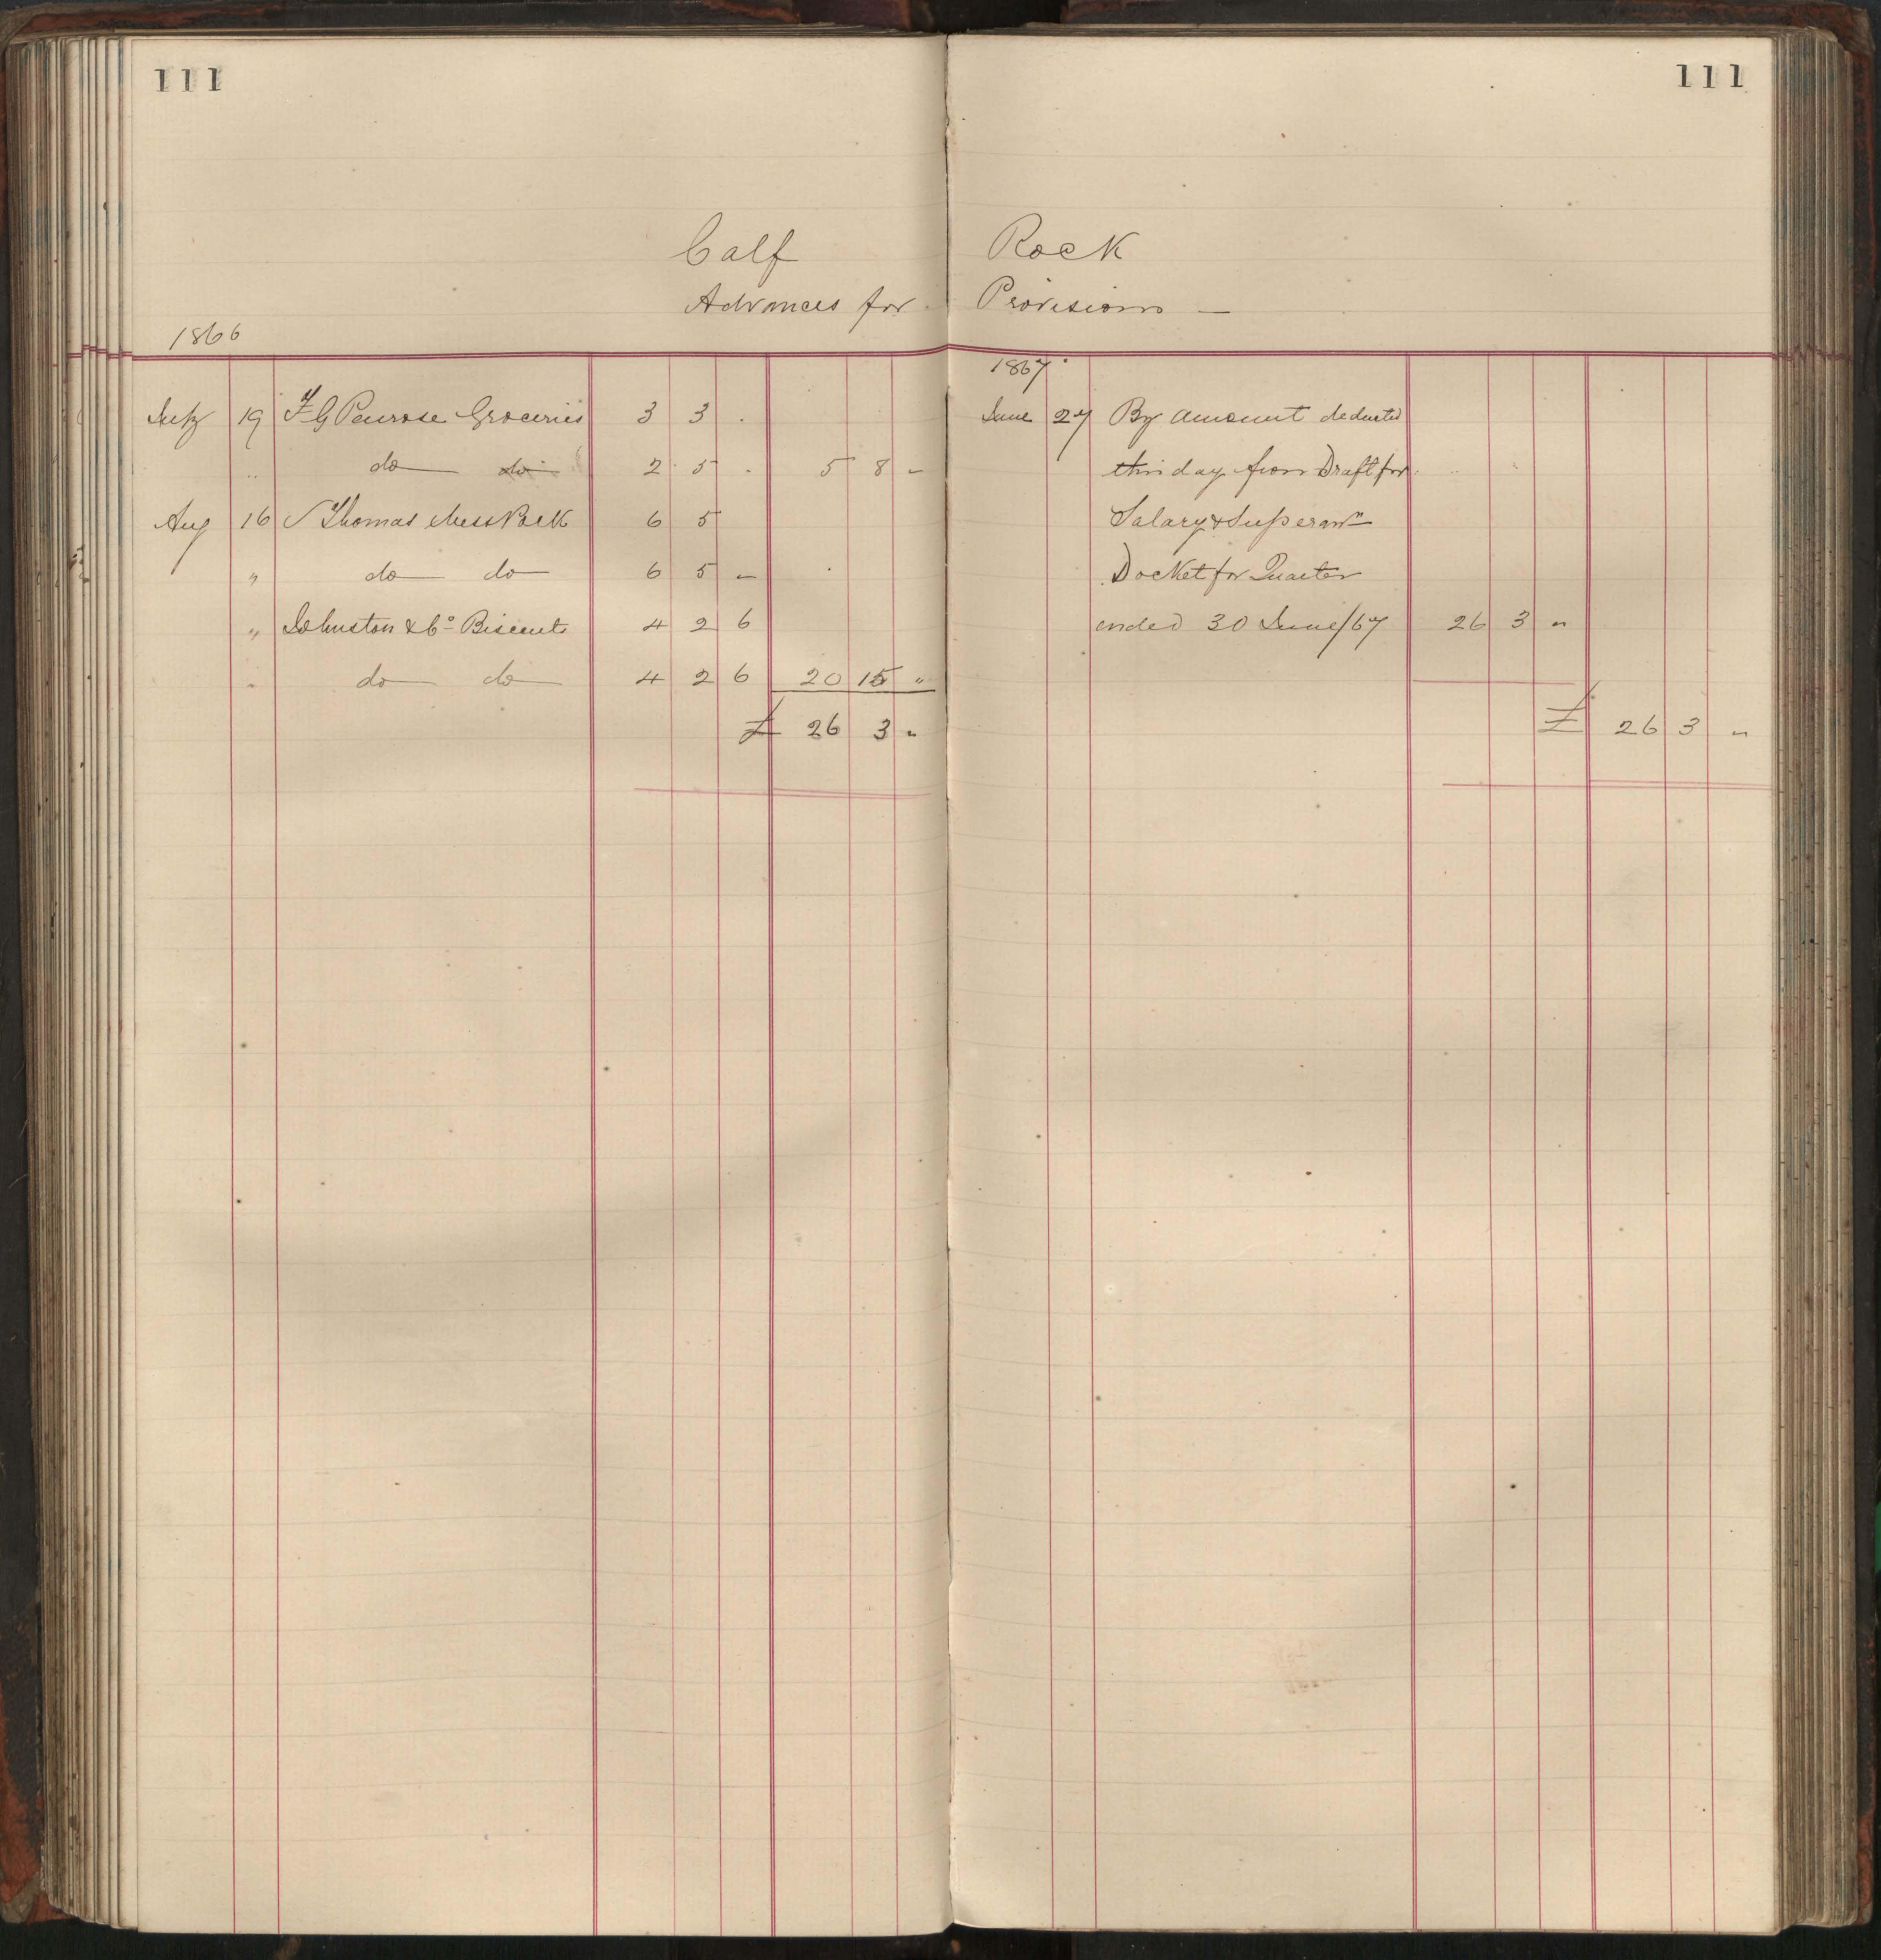 111
111
Calf Rock
Advances for Provisions —
1866
July 19 F G Penrose Groceries 3 3 .
" do do 2 5 . 5 8 "
Aug 16 J Thomas Mess Pork 6 5
" do do 6 5 "
" Johnston & Co Biscuits 4 2 6
" do do 4 2 6 20 15 "
£ 26 3 "
1867
June 27 By amount deducted
this day from Draft for
Salary & Superann
Docket for Quarter
ended 30 June/67 26 3 "
£ 26 3 "